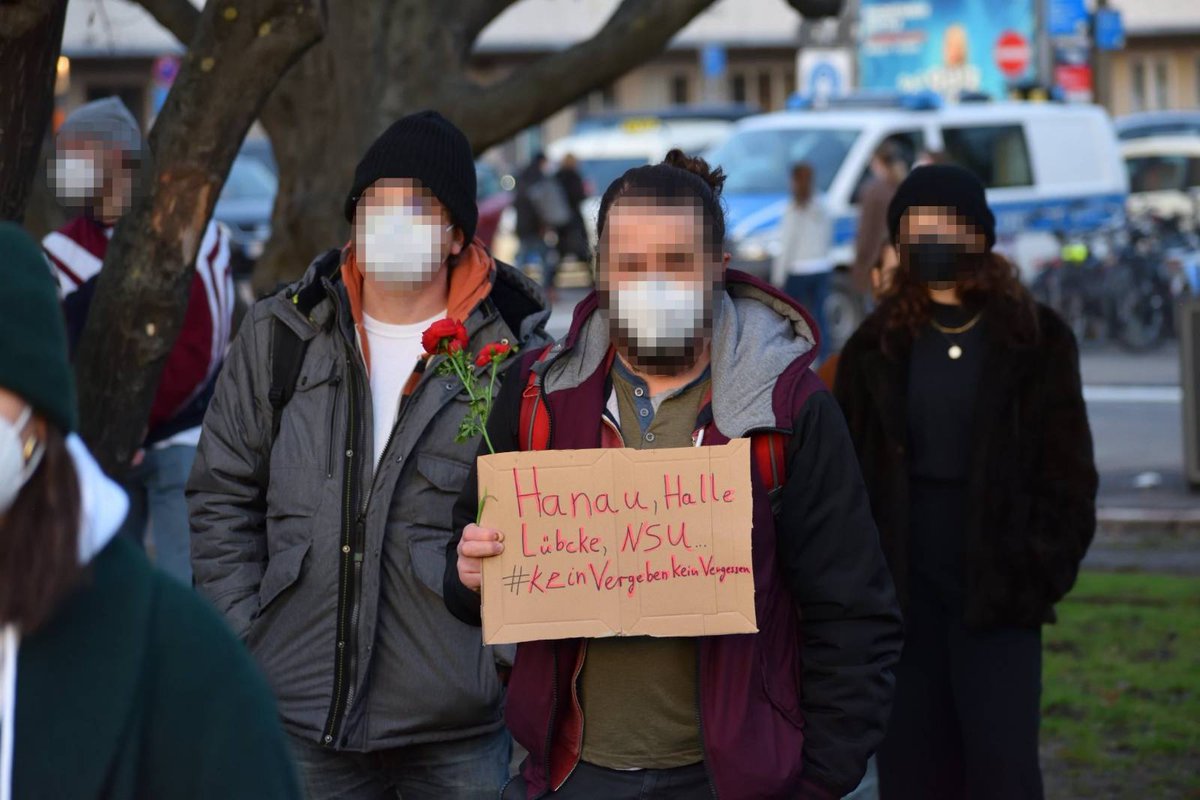 Hanau, Halle
Lübcke, NSU...
#KeinVergebenKeinVergessen